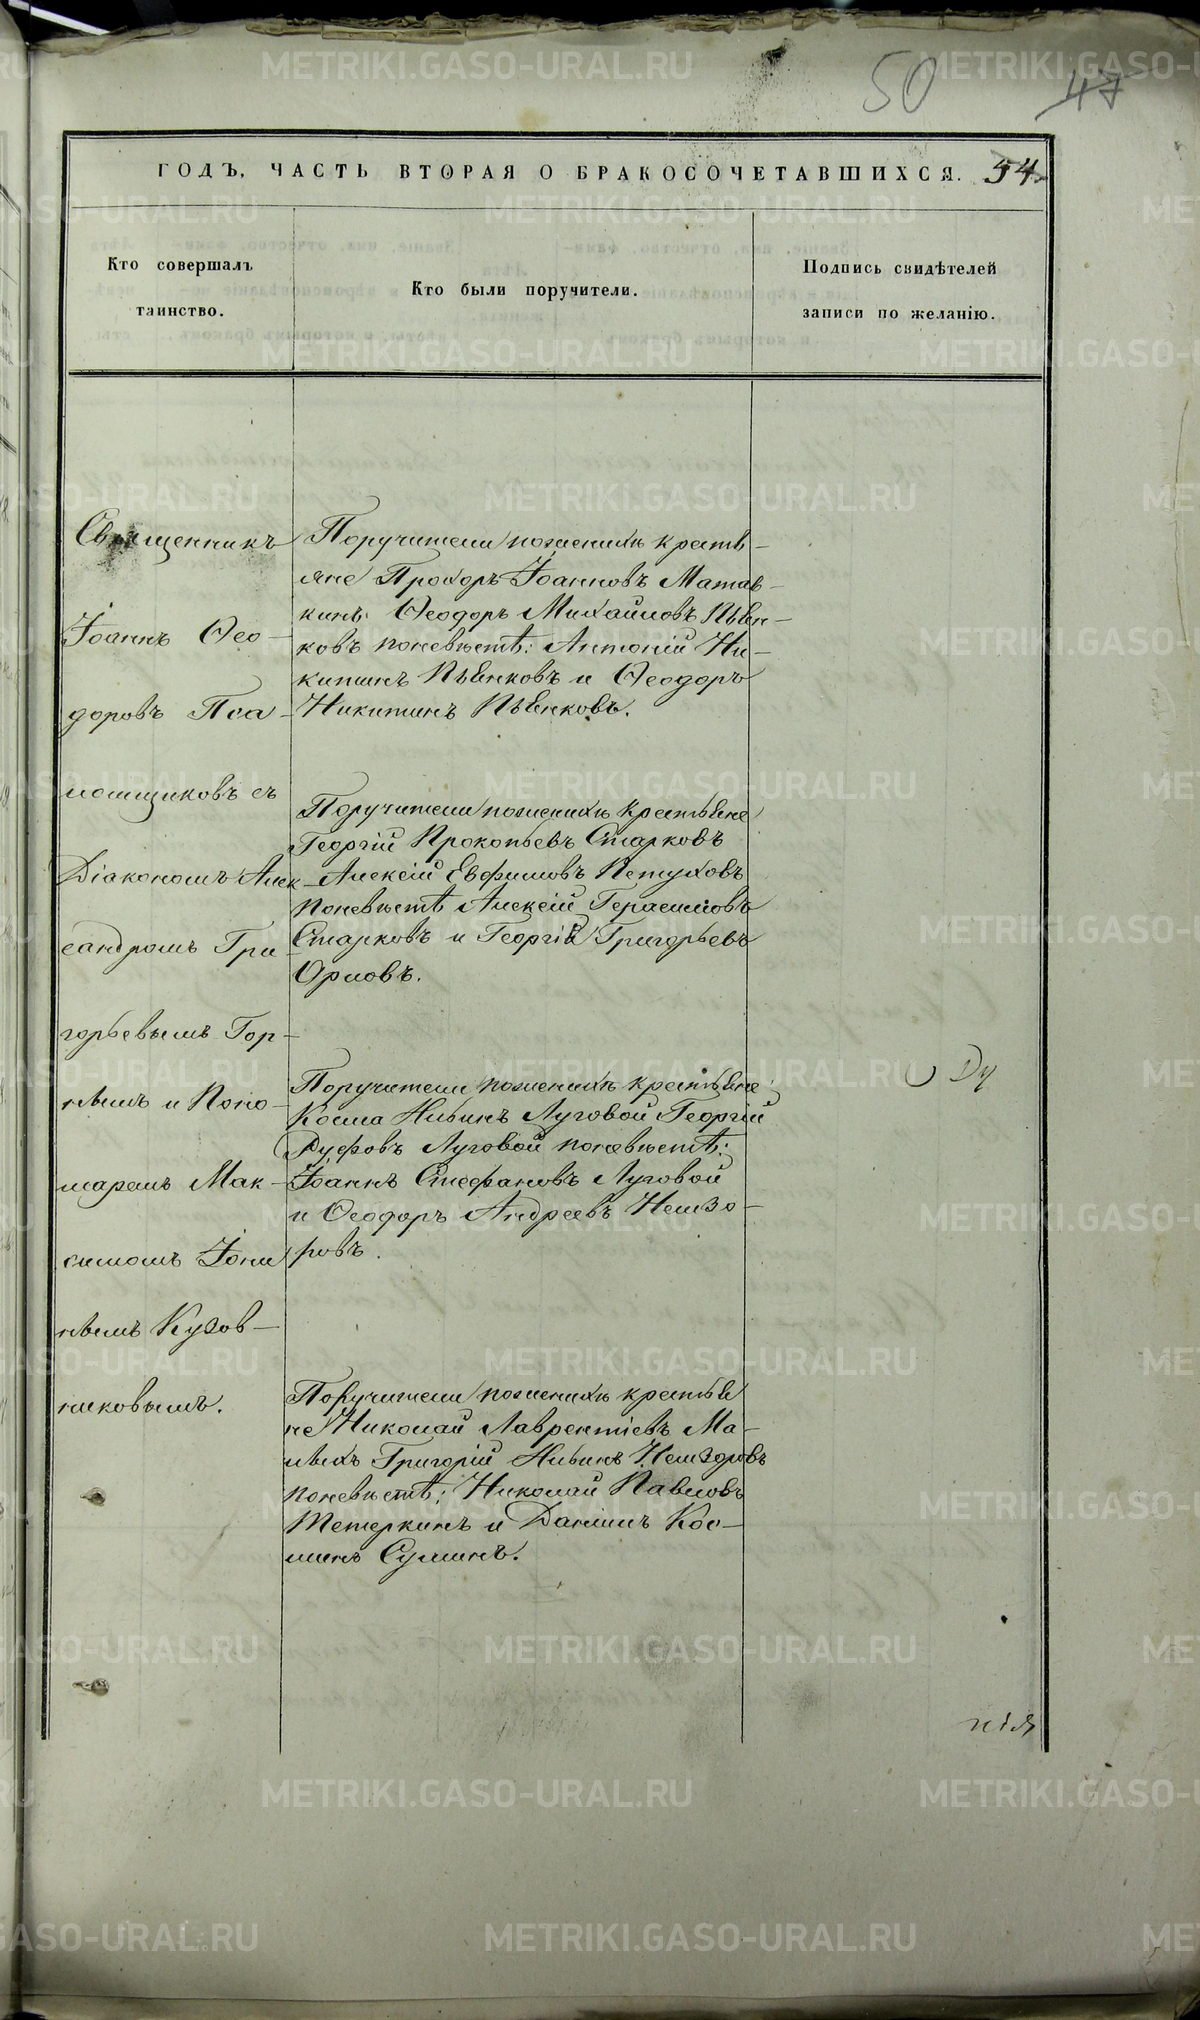 50 47
ГОДЪ, ЧАСТЬ ВТОРАЯ О БРАКОСОЧЕТАВШИХСЯ. 54
Кто совершалъ
таинство.
Кто были поручители.
Подпись свидѣтелей
записи по желанію.
Священникъ
Іоаннъ Ѳео-
доровъ Пса-
ломщиковъ съ
Діакономъ Алек-
сандромъ Гри-
горьевымъ Гор-
нымъ и Поно-
маремъ Мак-
симомъ Іони
нымъ Кузов-
никовымъ.
Поручители по женихѣ крестья-
яне Прохоръ Іоанновъ Матав-
кинъ Ѳеодоръ Михайловъ Пьян-
ковъ по невѣстѣ: Антоній Ни-
китинъ Пьянковъ и Ѳеодоръ
Никитинъ Пьянковъ.
Поручители по женихѣ крестьяне
Георгій Прокопьевъ Старковъ
Алексій Евфимовъ Петуховъ
По невѣстѣ Алексій Герасимовъ
Старковъ и Георгій Григорьевъ
Орловъ.
Поручители по женихѣ крестьяне
Косма Ильинъ Луговой Георгій
Руфовъ Луговой по невѣстѣ:
Іоаннъ Стефановъ Луговой
и Ѳеодоръ Андреевъ Немзо-
ровъ.
Поручители по женихѣ крестья
не Николай Лаврентіевъ Ма-
лыхъ Григорій Ильинъ Немзоровъ
по невѣстѣ: Николай Павловъ
Тетеркинъ и Даніилъ Кос-
минъ Сулинъ.
METRIKI.GASO-URAL.RU